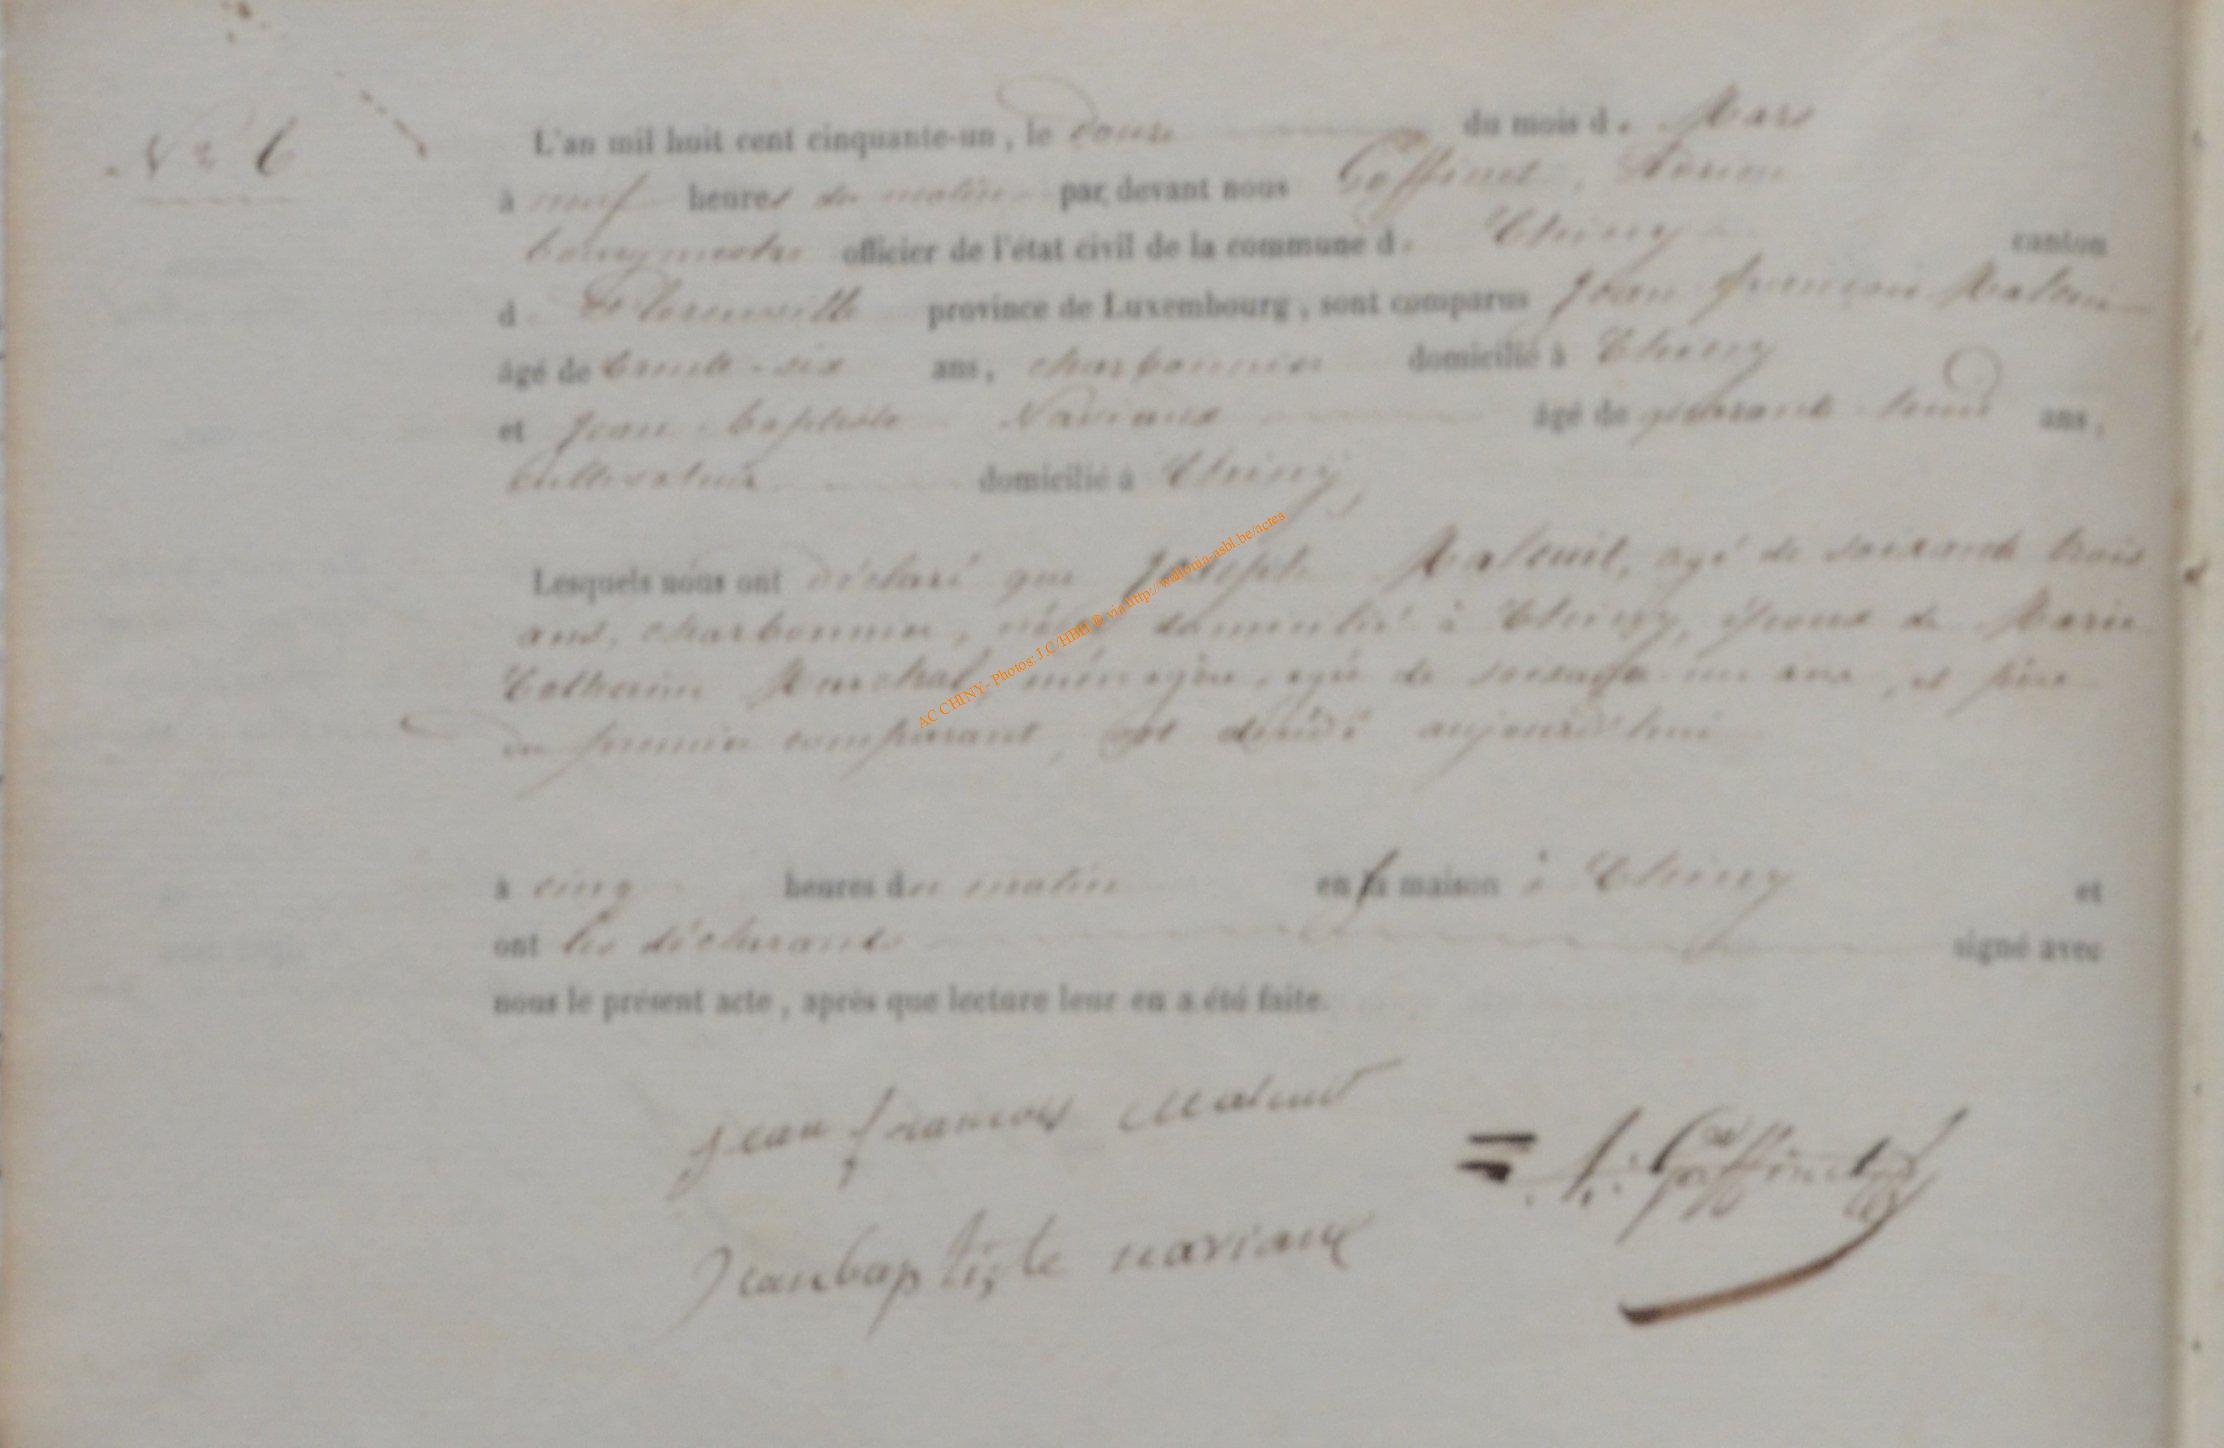 N° 6
L'an mil huit cent cinquante-un, le douze du mois de Mars
à neuf heures du matin par devant nous Goffinet,
bourgmestre officier de l'état civil de la commune de Chiny canton
de Florenville province de Luxembourg, sont comparus Jean françois Maleuit
âgé de trente-six ans, charbonnier domicilié à Chiny
et Jean Baptiste Naviaux âgé de ans,
Cultivateur domicilié à Chiny,
Lesquels nous ont déclaré que Joseph Maleuit, agé de soixante trois
ans, charbonnier, né et domicilié à Chiny, époux de Marie
Catherine Marchal, ménagère, agée de soixante un ans, et père
du premier comparant, est décédé aujourd'hui
à cinq heures du matin en sa maison à Chiny et
ont les déclarants signé avec
nous le présent acte, après que lecture leur en a été faite.
jean francois Maleuit
Goffinet
Jeanbaptiste naviaux
AC CHINY- Photos: J.C/HBH @ via http://wallonia-asbl.be/actes